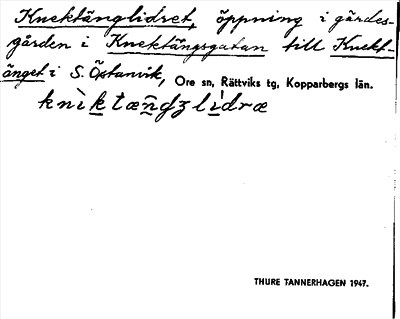 Knektänglidret, öppning i gärdes-
gården i Knektängsgatan till Knekt-
änget i S. Östanvik, Ore sn, Rättviks tg, Kopparbergs län.
knìktæn̂gʒlìdræ
THURE TANNERHAGEN 1947.